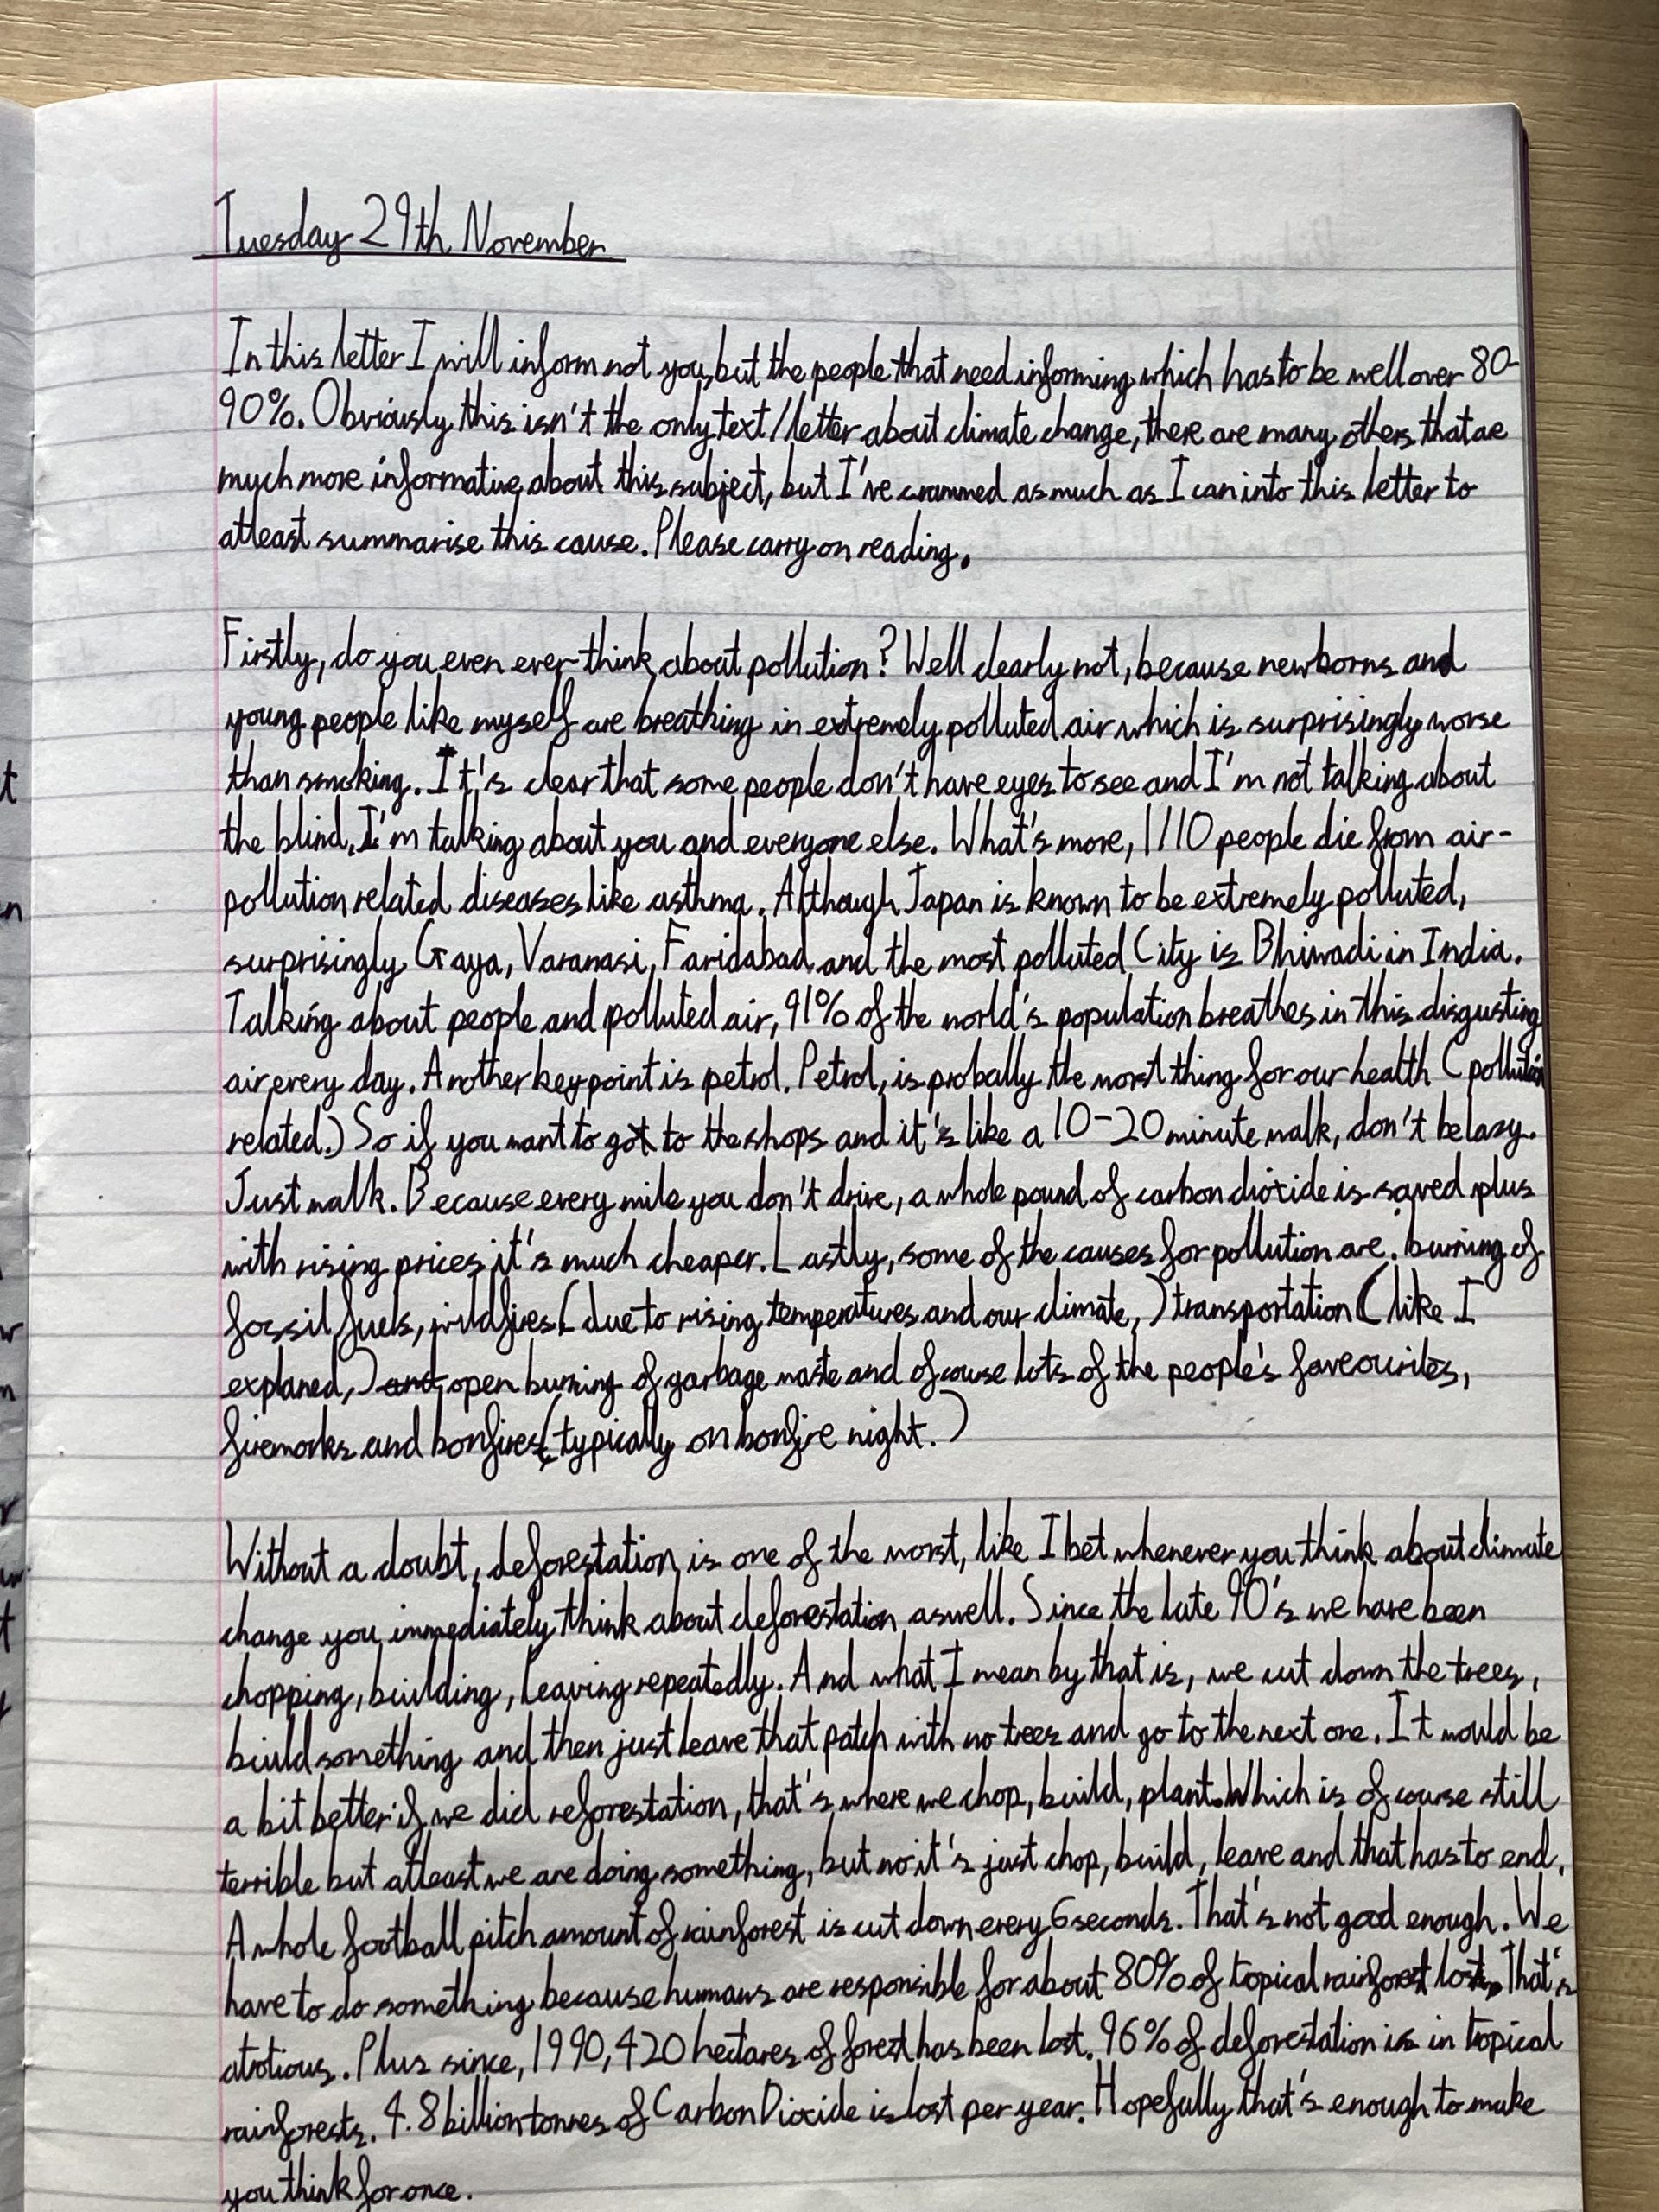 Tuesday 29th November
In this letter I will inform not you, but the people that need informing which has to be well over 80-
90%. Obviously this isn't the only text/letter about climate change, there are many others that are
much more informative about this subject, but I've crammed as much as I can into this letter to
atleast summarise this cause. Please carry on reading.
Firstly, do you even ever think about pollution? Well clearly not, because newborns and
young people like myself are breathing in extremely polluted air which is surprisingly worse
than smoking. It's clear that some people don't have eyes to see and I'm not talking about
the blind, I'm talking about you and everyone else. What's more, 1/10 people die from air-
pollution related diseases like asthma. Although Japan is known to be extremely polluted,
surprisingly Gaya, Varanasi, Faridabad and the most polluted City is Bhiwadi in India.
Talking about people and polluted air, 91% of the world's population breathes in this disgusting
air every day. Another key point is petrol. Petrol, is probally the worst thing for our health (pollution
related.) So if you want to got to the shops and it's like a 10-20 minute walk, don't be lazy.
Just walk. Because every mile you don't drive, a whole pound of carbon dioxide is saved plus
with rising prices it's much cheaper. Lastly, some of the causes for pollution are: burning of
fossil fuels, wildfires (due to rising temperatures and our climate,) transportation (like I
explaned,) and open burning of garbage waste and ofcourse lots of the people's faveourites,
fireworks and bonfires (typically on bonfire night.)
Without a doubt, deforestation is one of the worst, like I bet whenever you think about climate
change you immediately think about deforestation aswell. Since the late 90's we have been
chopping, building, leaving repeatedly. And what I mean by that is, we cut down the trees,
build something and then just leave that patch with no trees and go to the next one. It would be
a bit better if we did reforestation, that's where we chop, build, plant. Which is of course still
terrible but atleast we are doing something, but no it's just chop, build, leave and that has to end.
A whole football pitch amount of rainforest is cut down every 6 seconds. That's not good enough. We
have to do something because humans are responsible for about 80% of topical rainforest lost. That's
atrotious. Plus since, 1990, 420 hectares of forest has been lost. 96% of deforestation is in topical
rainforests. 4.8 billion tonnes of Carbon Dioxide is lost per year. Hopefully that's enough to make
you think for once.